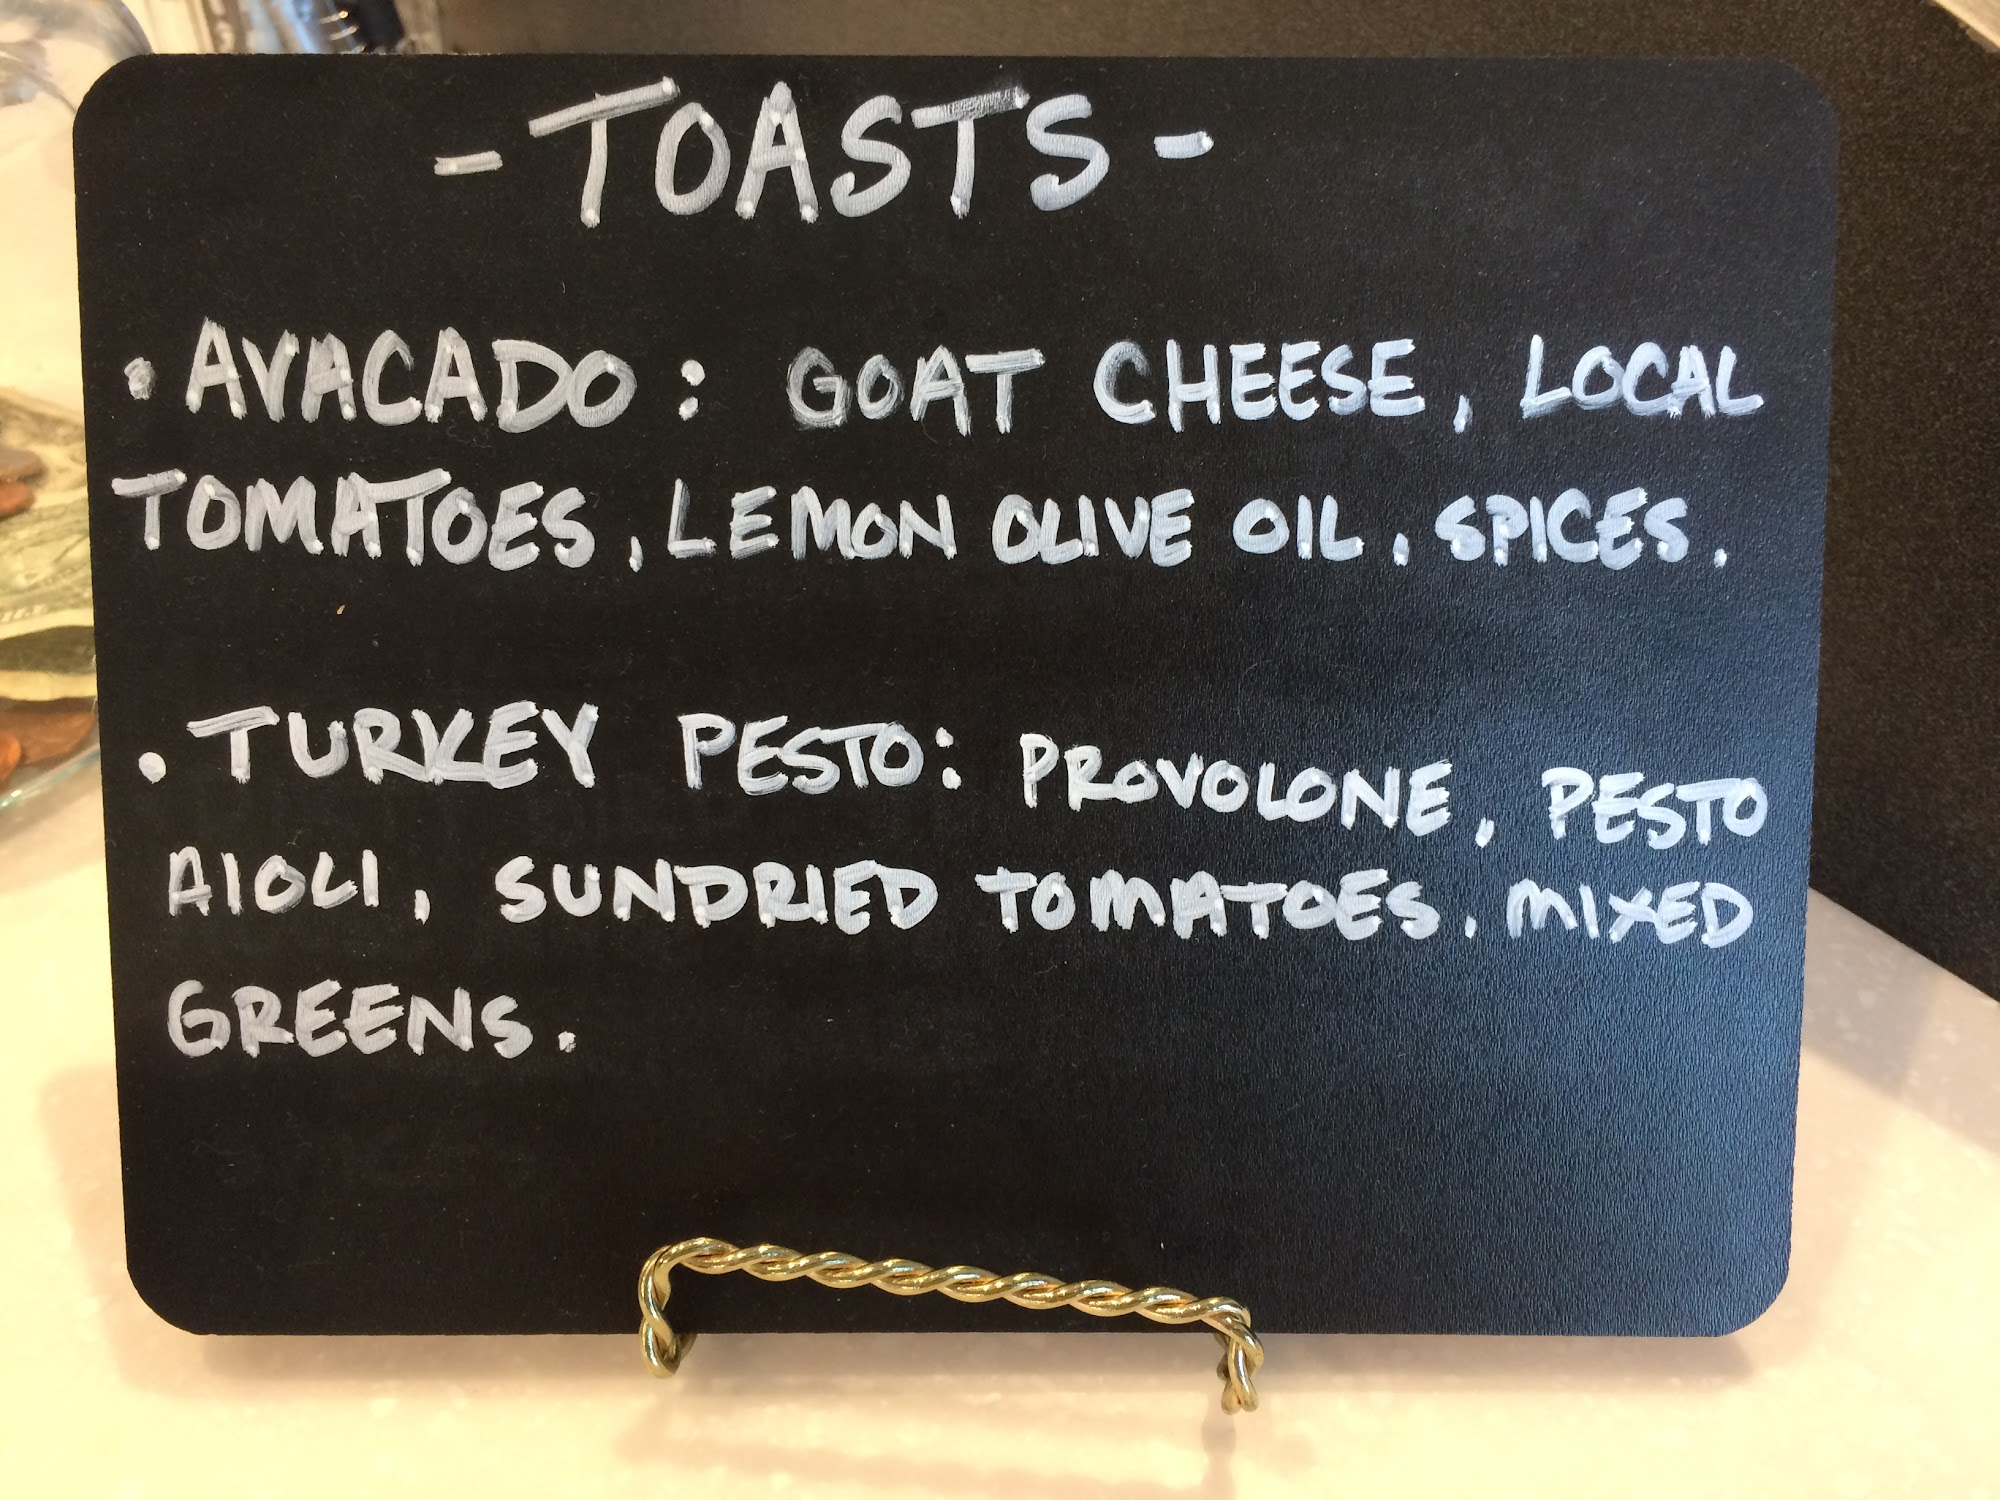 -TOASTS-
• AVACADO: GOAT CHEESE, LOCAL
TOMATOES, LEMON OLIVE OIL, SPICES.
• TURKEY PESTO: PROVOLONE, PESTO
AIOLI, SUNDRIED TOMATOES, MIXED
GREENS.